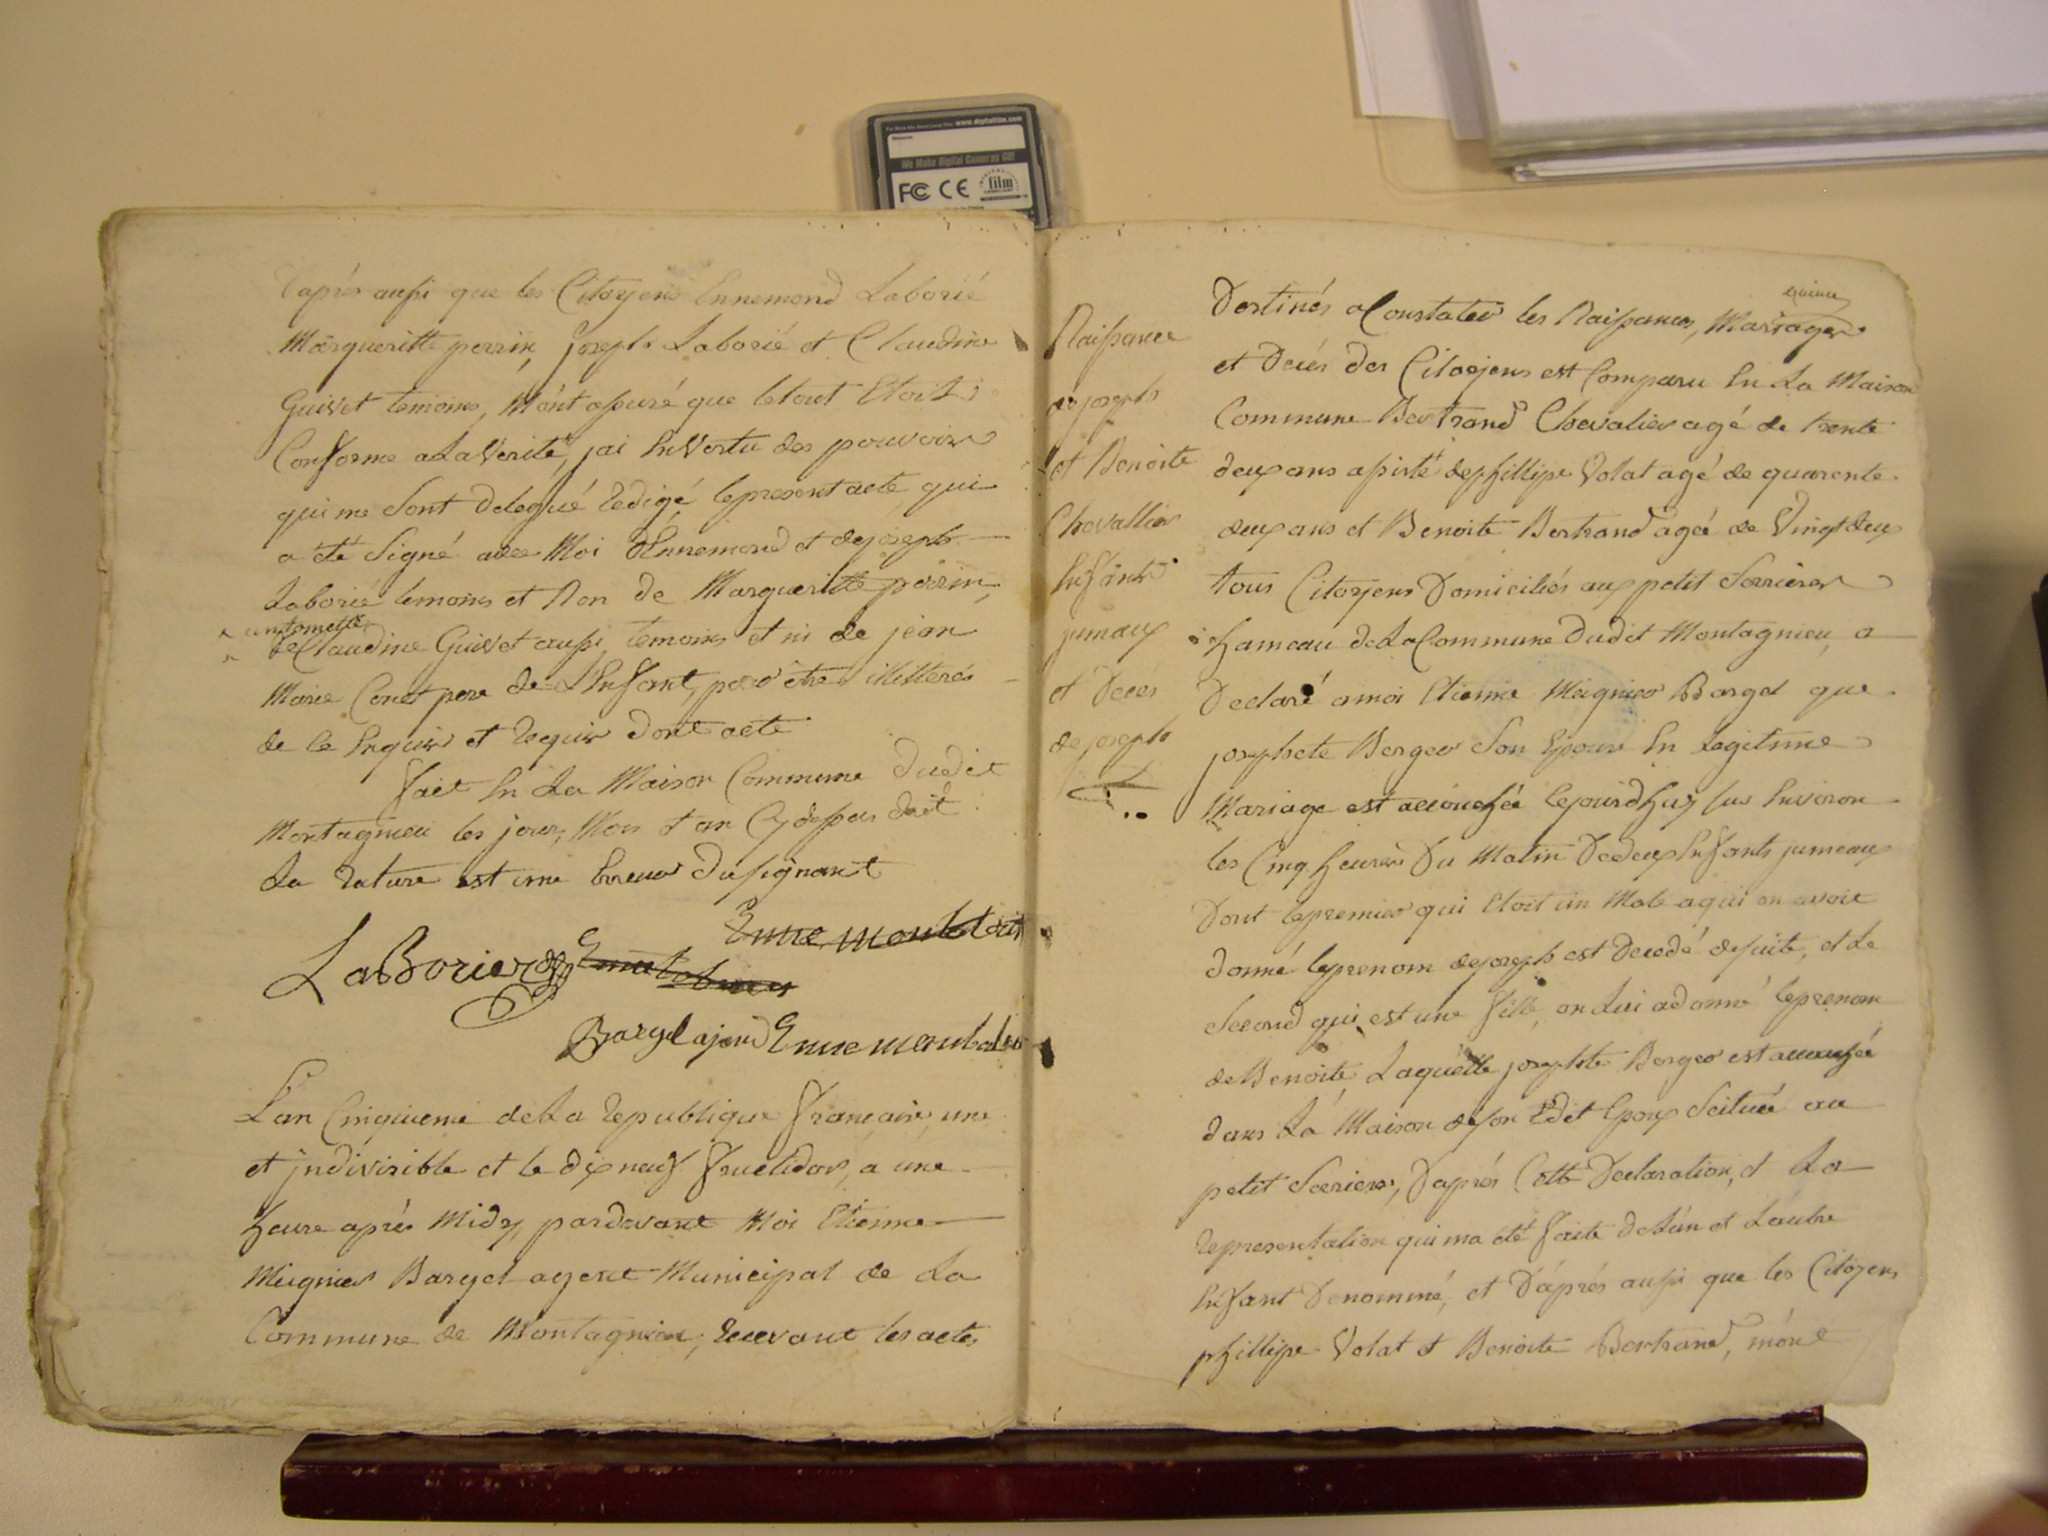 www.digitalfilm.com
We Make Digital Cameras Go!
FC CE film
D'après aussi que les Citoyens Ennemond Laborié
Margueritte perrin, joseph Laborié et Claudine
Guivet temoins, M'ont assuré que le tout Etoit
Conforme a La Verité, jai En Vertu des pouvoirs
qui me Sont Delegué redigé le present acte qui
a été Signé avec Moi d'Ennemond et de joseph
Laborié temoins et Non de Margueritte perrin,
de Claudine Guivet aussi temoins et ni de jean
Marie Conet pere de L'Enfant, pour être illitterés
de ce Enquis et requis Dont acte
fait En La Maison Commune dudit
Montagnieu les jour, Mois et an Cydessus
La rature est une Erreur du signant
LaBorier
Bargel agent Ennemond
L'an Cinquieme de La republique française, une
et jndivisible et le dix neuf fructidor, a une
heure après Midy, pardevant Moi Etienne
Meignier Bargel agent Municipal de La
Commune de Montagnieu, recevant les actes
quinze
Naissance
de joseph
et Benoite
Chevallier
Enfants
jumaux
et Decés
de joseph
Destinés a Constater les Naissances, Mariages
et Decés des Citoyens est Comparu En La Maison
Commune Bertrand Chevalier agé de trente
deux ans assisté de phillipe Volat agé de quarente
deux ans et Benoite Bertrand agée de Vingt deux
tous Citoyens Domiciliés aux petit Serrieres
hameau de La Commune Dudit Montagnieu, a
Declaré a moi Etienne Meignier Bargel que
josephete Berger Son Epouse En Legitime
Mariage est accouchée le jourdhuy sus Environ
les Cinq heures Du Matin De deux Enfants jumeaux
Dont le premier qui Etoit un Male a qui on avoit
donné le prenom de joseph est Decedé de suite, et Le
Second qui est une fille, on Lui a donné le prenom
de Benoite, Laquelle josephte Berger est accouchée
dans La Maison de son Edit Epoux Scituée au
petit Serriere, D'après Cette Declaration, et La
representation qui ma été faite de L'un et L'autre
Enfant Denommé, et D'après aussi que les Citoyens
phillipe Volat et Benoite Bertrand, m'ont